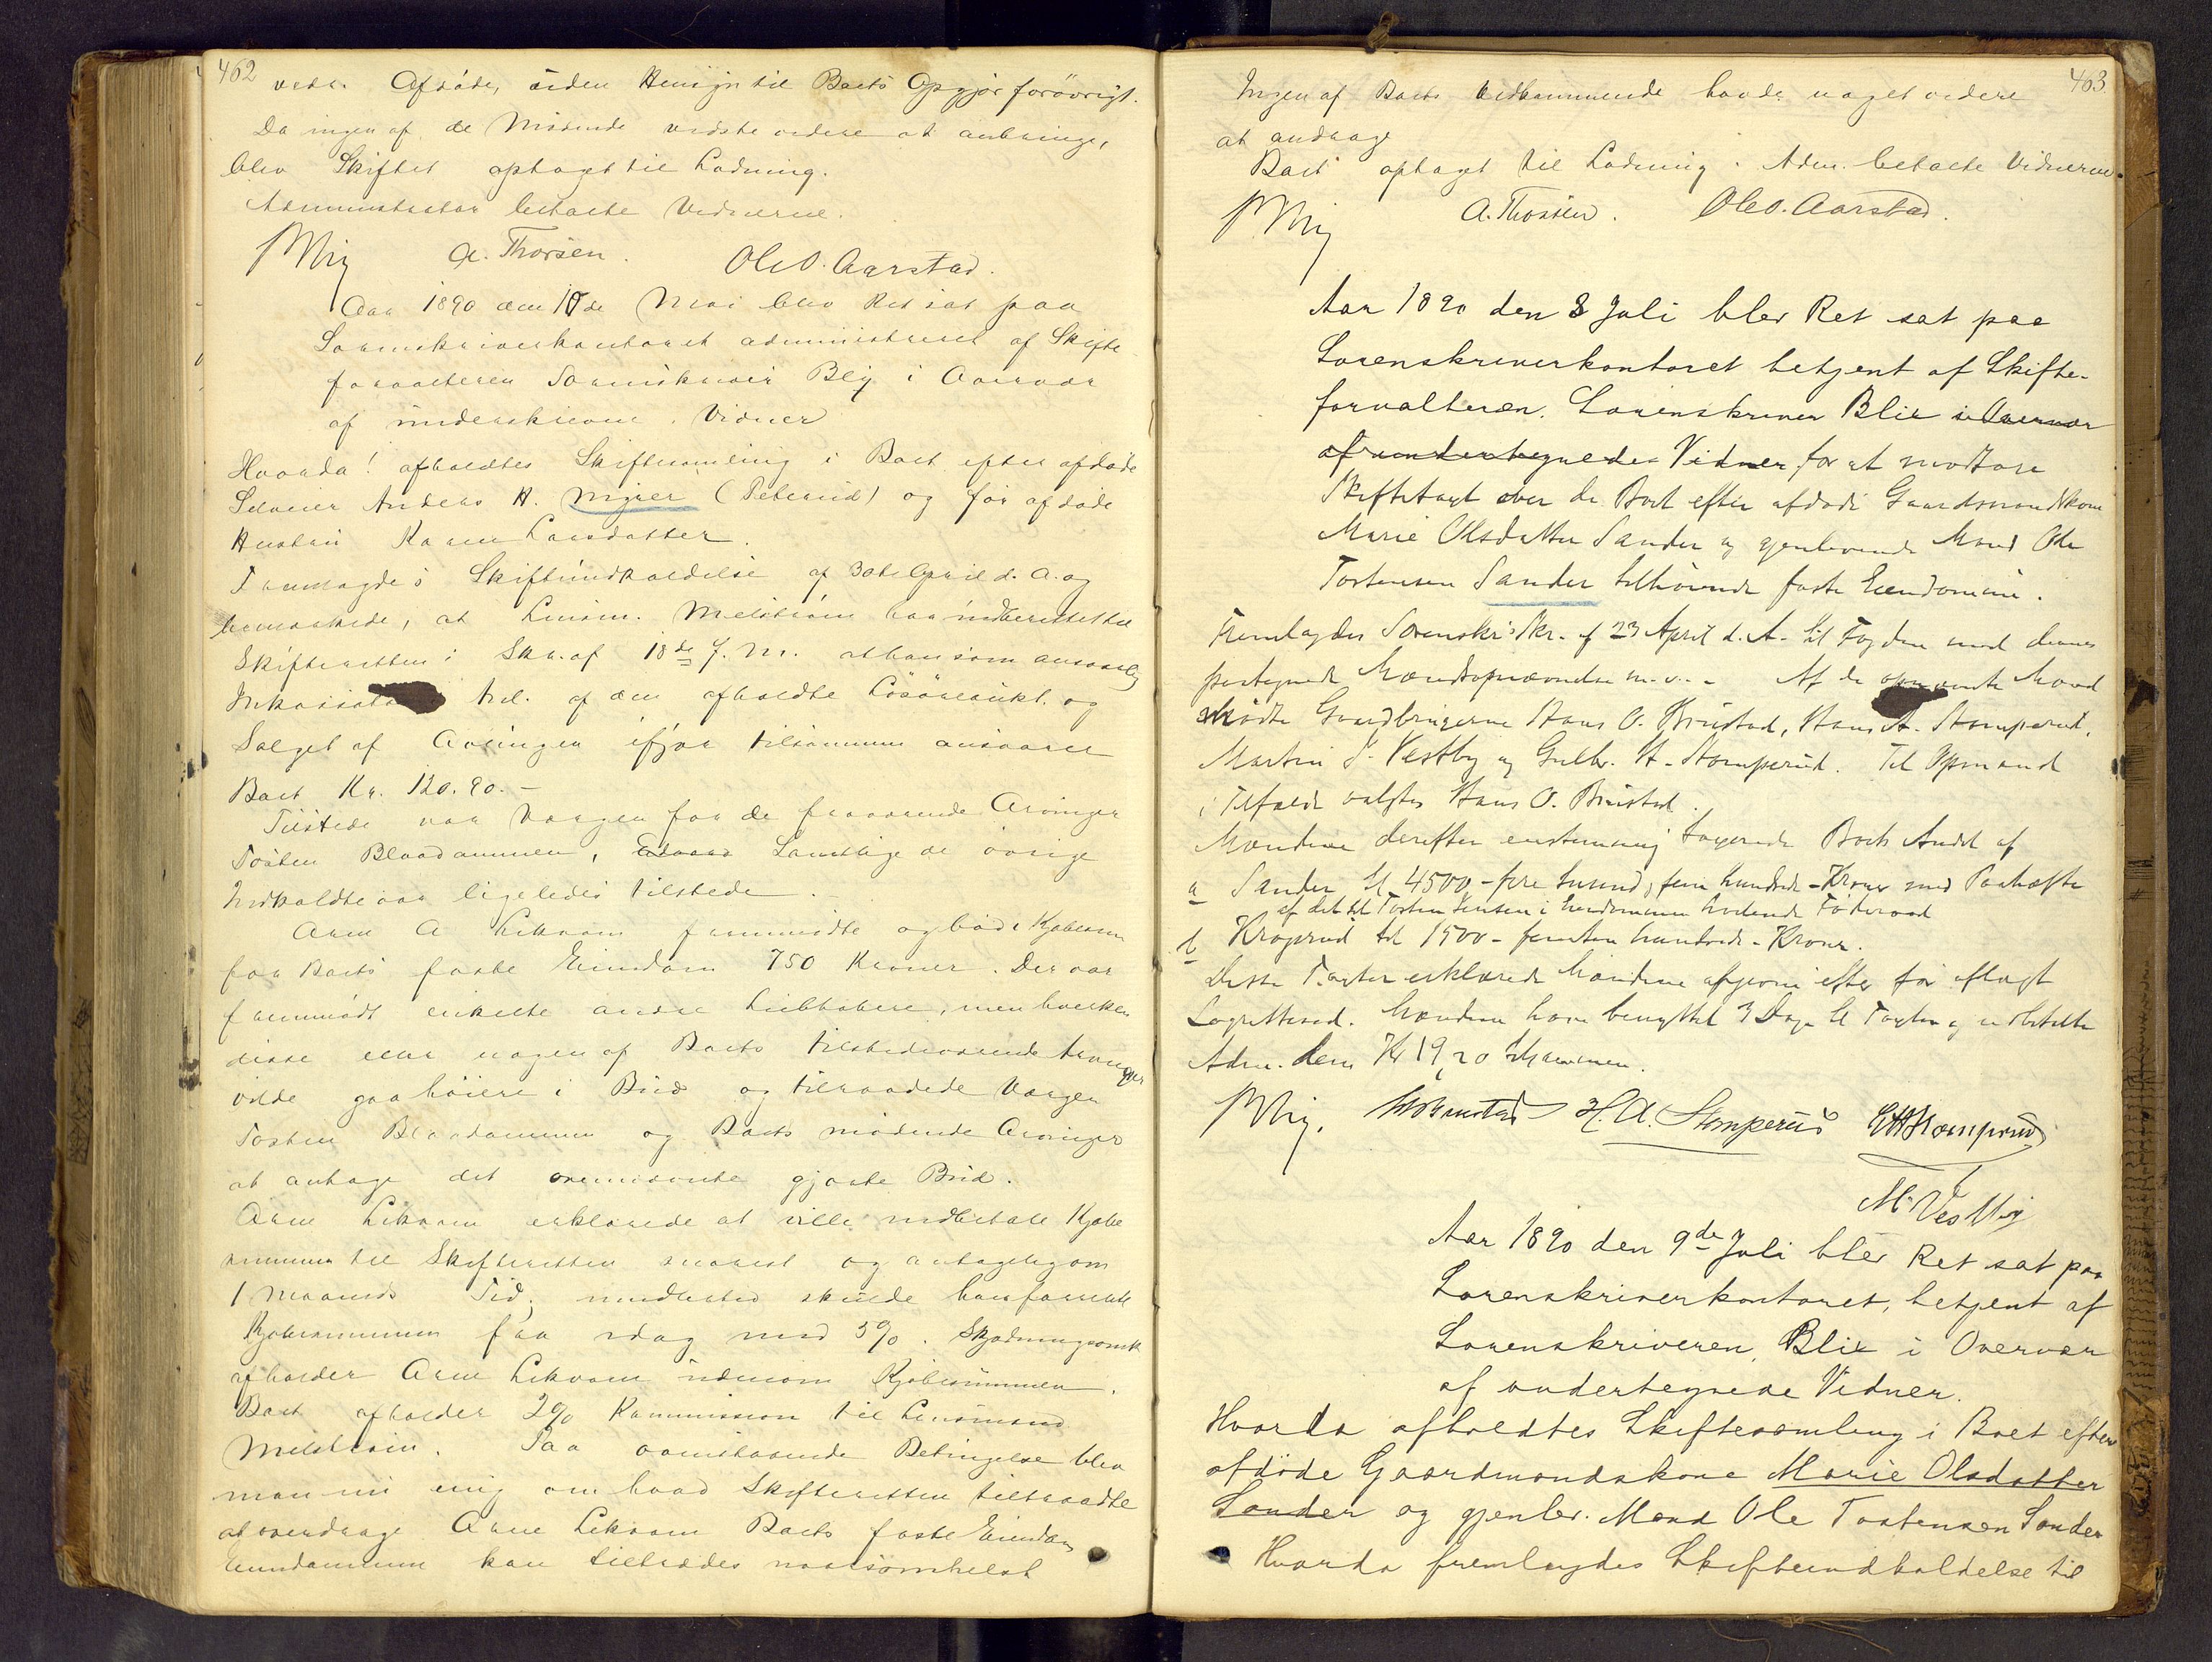 462
vedr. Afdøde, uden Hensyn til Boets Opgjør forøvrigt.
Da ingen af de Mødende vidste videre at anbringe,
blev Skiftet optaget til Lodning.
Administrator betalte Vidnerne.
Blix A. Thorsen. Ole O. Aarstad.
Aar 1890 den de Mai blev Ret sat paa
Sorenskriverkontoret administreret af Skifte
forvalteren Sorenskriver Blix i Overvær
af underskrevne Vidner
Hvorda! afholdtes Skiftesamling i Boet efter afdøde
Selveier Anders H. (Peterud) og før afdøde
Hustru Karen Larsdatter.
Fremlagdes Skifteindkaldelse af 30te April d. A. og
bemærkede, at Lensm. Melstrøm har indberettet til
Skifteretten i Skr. af 18de f. M. at han som ansvarlig
af den afholdte Løsøreaukt. og
Salget af Avlingen ifjor tilsammen ansvarer
Boet Kr. 120.90.-
Tilstede var Værgen for de fraværende Arvinger
Tosten Blaadammen, Samtlige de øvrige
Indkaldte var ligeledes tilstede.
Arne A Likvam fremmødte og bød i Kjøbesum
for Boets faste Eiendom 750 Kroner. Der var
fremmødt enkelte andre Liebhabere, men hverken
disse eller nogen af Boets tilstedeværende Arvinger
vilde gaa høiere i Bud og tilraadede Værgen
Tosten Blaadammen og Boets mødende Arvinger
at antage det ovennævnte gjorte Bud.
Arne Likvam erklærede at ville indbetale Kjøbe
summen til Skifteretten snarest og antagelig om
1 Maaneds Tid; imidlertid skulde han forrente
Kjøbesummen fra idag med 5%. Skjødningsomk
afholder Arne Likvam udenom Kjøbesummen.
Boet afholder 2% Kommission til Lensmand
Melstrøm. Paa ovenstaaende Betingelse blev
man nu enig om hvad Skifteretten tiltraadte
at overdrage Arne Likvam Boets faste Eiendom
Eiendommen kan tiltrædes naarsomhelst
463.
Ingen af Boets Vedkommende havde noget videre
at andrage
Boet optaget til Lodning. Adm. betalte Vidnerne.
Blix A. Thorsen. Ole O. Aarstad.
Aar 1890 den 8 Juli blev Ret sat paa
Sorenskriverkontoret betjent af Skifte-
forvalteren. Sorenskriver Blix i Overvær
af undertegnede Vidner for at modtage
Skiftetaxt over de Boet efter afdøde Gaardmandskone
Marie Olsdatter Sander og gjenlevende Mand Ole
Tostensen Sander tilhørende faste Eiendomme.
Fremlagdes Sorenskr's Skr. af 23 April d. A. til Fogden med dennes
paategnede Mændsopnævnelse m. v. - Af de opnævnte Mænd
mødte Gaardbrugerne Hans O. Brustad, Hans A. Stomperud,
Martin J. Vestby og Gulbr. H. Stomperud. Til Opmand
i Tilfælde valgtes Hans O. Brustad.
Mændene derefter enstemmig taxerede Boets Andel af
a Sander til 4500 - fire tusind, fem hundrede - Kroner med Paahæfte
af det til Tosten Jensen i Eiendommen hvilende Føderaad
b Kroperud til 1500 - femten hundrede - Kroner.
Disse Taxter erklærede Mændene afgivne efter før aflagt
Lagretteed. Mændene have benyttet 3 Dage til Taxten og udbetalte
Adm. dem Kr 19,20 tilsammen.
Blix. HOBrustad H. A. Stomperud GHStomperud
M. Vestby
Aar 1890 den 9de Juli blev Ret sat paa
Sorenskriverkontoret, betjent af
Sorenskriveren Blix i Overvær
af undertegnede Vidner.
Hvorda afholdtes Skiftesamling i Boet efter
afdøde Gaardmandskone Marie Olsdatter
Sander og gjenlev. Mand Ole Tostensen Sander
Hvorda fremlagdes Skifteindkaldelse til